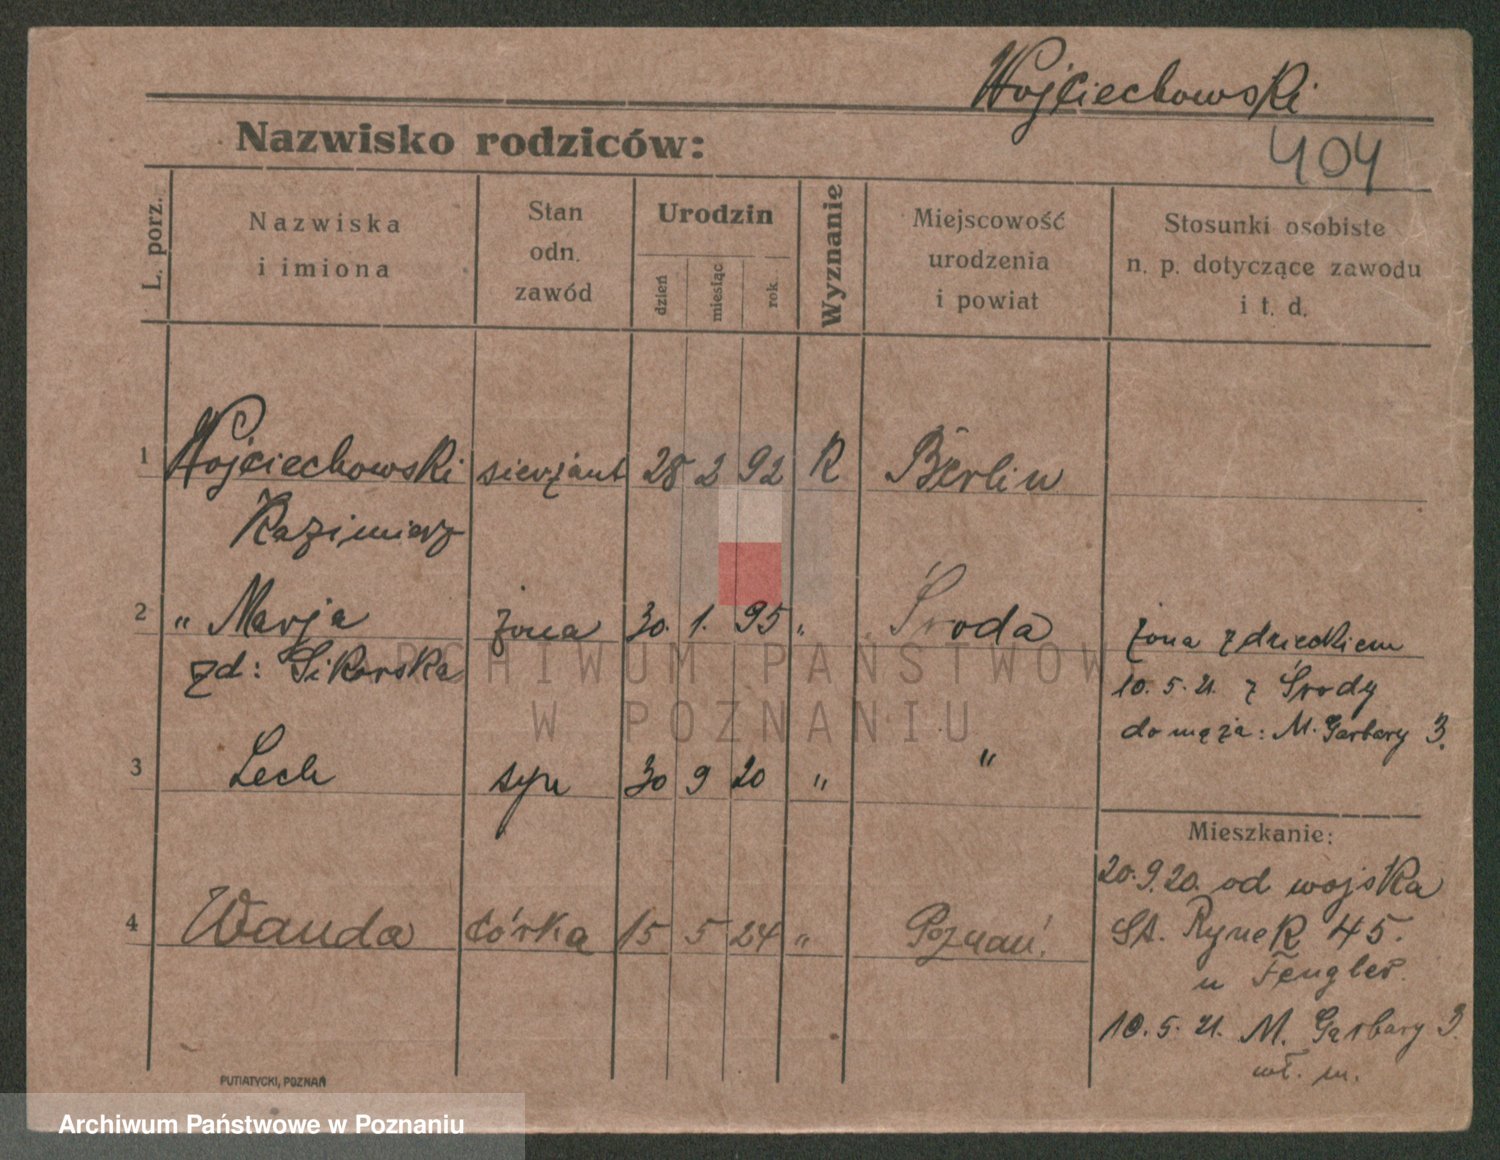 Wojciechowski
Nazwisko rodziców:
404
L. porz.
Nazwiska
i imiona
Stan
odn.
zawód
Urodzin
dzień
miesiąc
rok.
Wyznanie
Miejscowość
urodzenia
i powiat
Stosunki osobiste
n. p. dotyczące zawodu
i t. d.
1 Wojciechowski sierżant 28 2 92 R Berlin
Kazimierz
2 " Marja żona 30. 1. 95 " Środa
zd: Sikorska
żona z dzieckiem
10. 5. 21. z Środy
do męża: M. Garbary 3.
3 Lech syn 30 9 20 " "
Mieszkanie:
20. 9. 20. od wojska
St. Rynek 45.
u Fengler.
4 Wanda córka 15 5 24 " Poznań.
10. 5. 21. M. Garbary 3.
wł. m.
PUTIATYCKI, POZNAŃ
ARCHIWUM PAŃSTWOWE
W POZNANIU
Archiwum Państwowe w Poznaniu